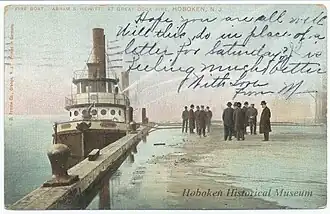 FIRE BOAT, "ABRAM S. HEWITT" AT GREAT DOCK FIRE, HOBOKEN, N. J.
Hope you are all well
Will this do, in place of a
letter for Saturday? is
feeling much better
With love
from M
Hoboken Historical Museum